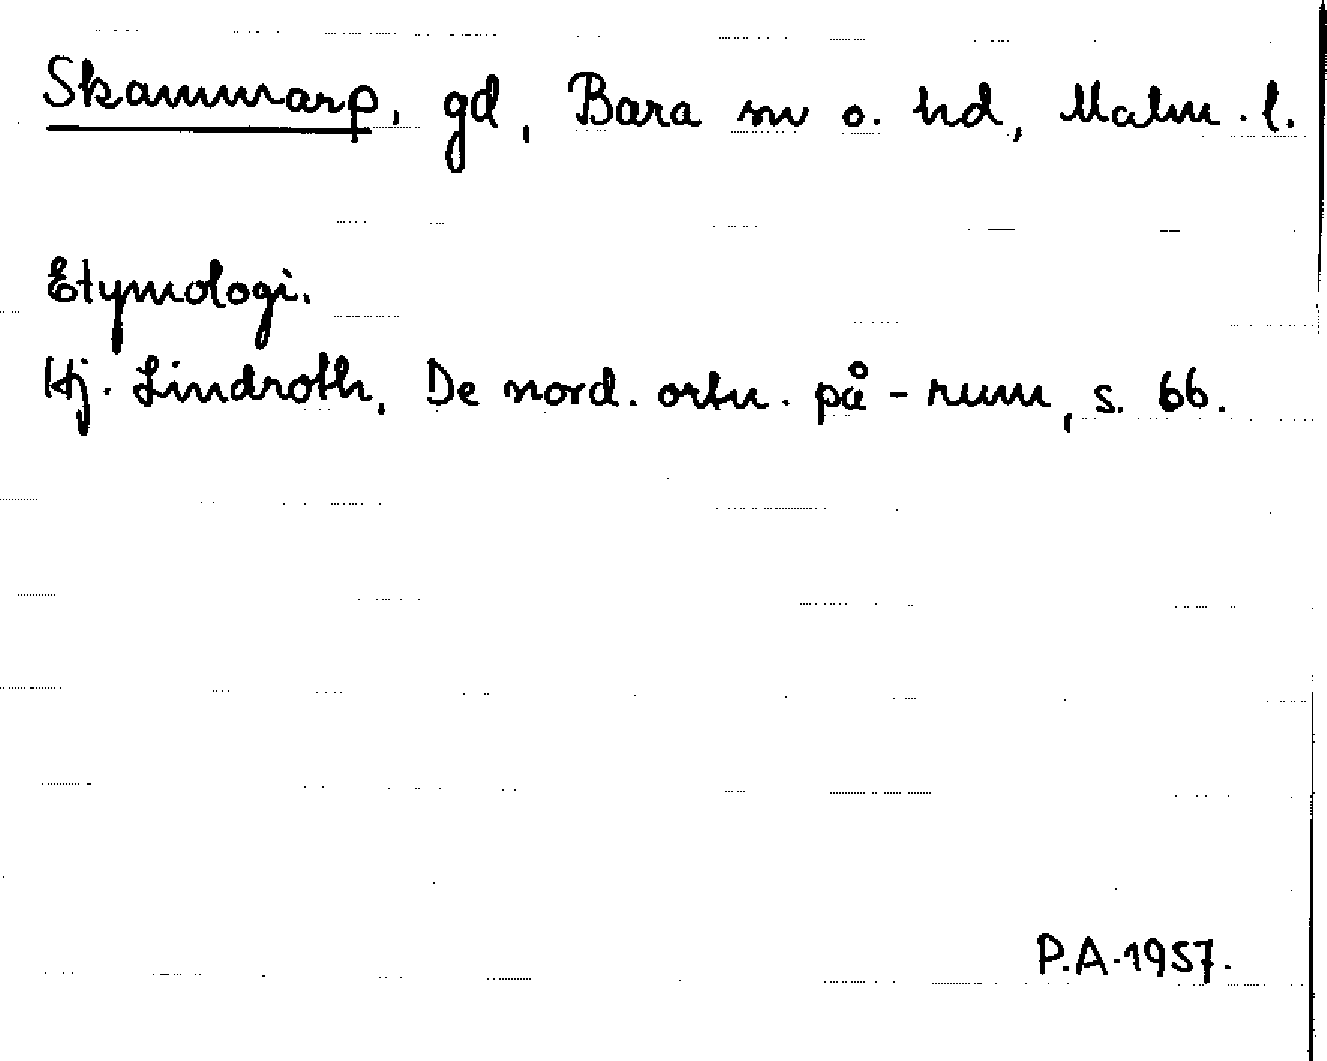 Skammarp, gd, Bara sn o. hd, Malm. l.
Etymologi.
Hj. Lindroth, De nord. ortn. på -rum, s. 66.
P.A. 1957.